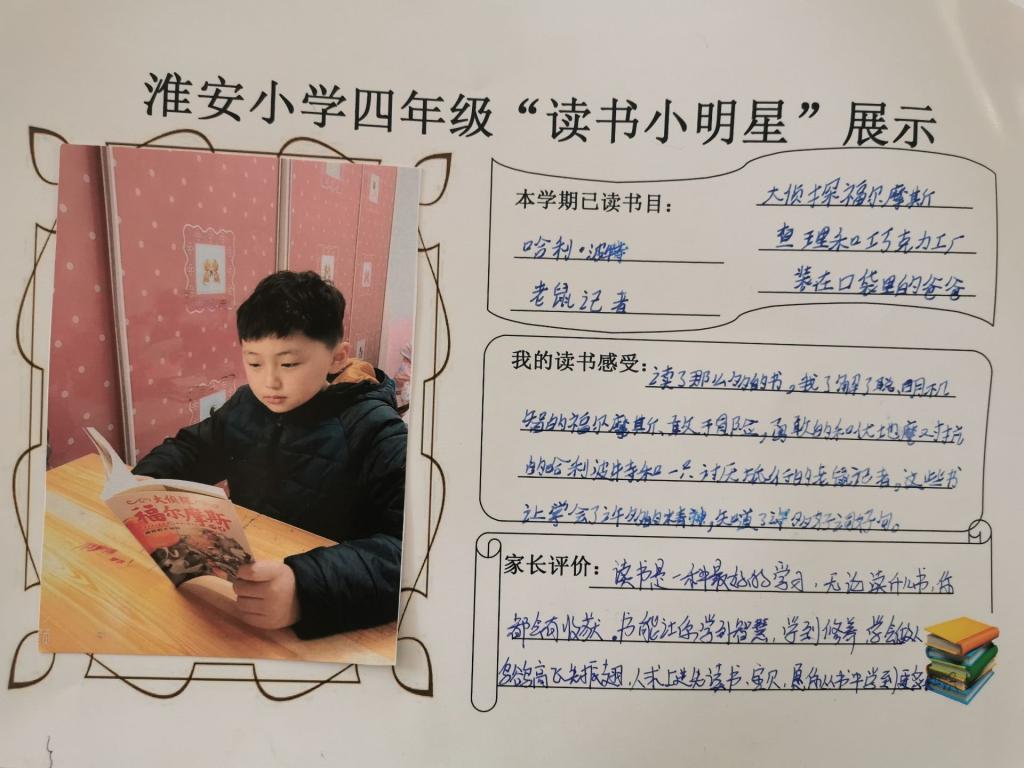 淮安小学四年级“读书小明星”展示
本学期已读书目：
哈利·波特
老鼠记者
大侦探福尔摩斯
查理和巧克力工厂
装在口袋里的爸爸
我的读书感受：
读了那么多的书，我了解了聪明机
智的福尔摩斯、敢于冒险，勇敢的和伏地魔对抗
的哈利波特和一只讨厌旅行的老鼠记者。这些书
让学会了许多的精神，知道了许多好词好句。
家长评价：
读书是一种最好的学习，无论读什么书，你
都会有收获。书能让你学到智慧，学到修养 学会做人
高飞先振翅，人求上进先读书、宝贝，愿你从书中学到更多
大侦探
福尔摩斯